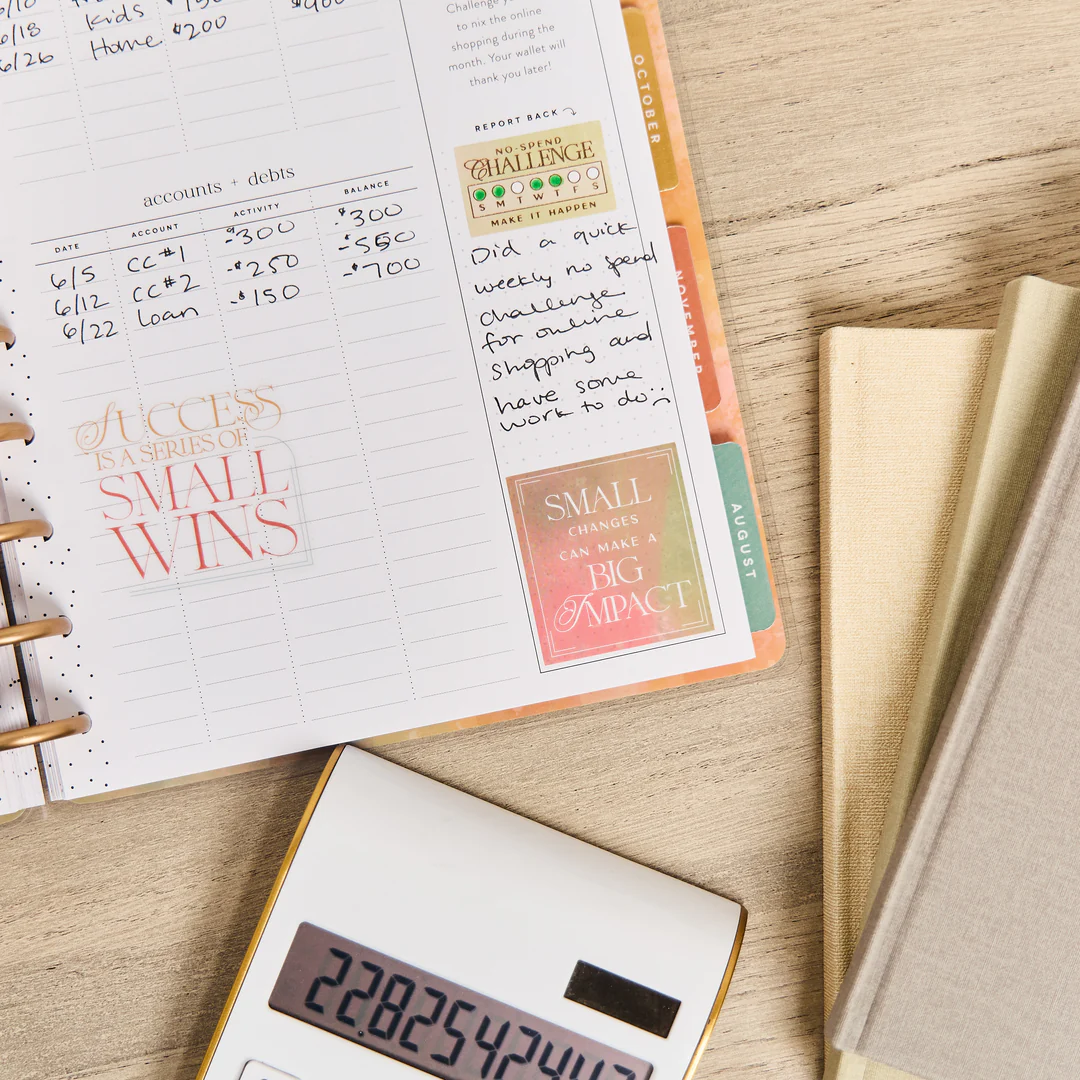 6/18 Kids
6/26 Home $200
Challenge
to nix the online
shopping during the
month. Your wallet will
thank you later!
REPORT BACK
NO-SPEND
CHALLENGE
S M T W T F S
MAKE IT HAPPEN
Did a quick
weekly no spend
challenge
for online
shopping and
have some
work to do
accounts + debts
DATE ACCOUNT ACTIVITY BALANCE
6/5 CC #1 -$300 -$300
6/12 CC #2 -$250 -$550
6/22 Loan -$150 -$700
SUCCESS
IS A SERIES OF
SMALL
WINS
SMALL
CHANGES
CAN MAKE A
BIG
IMPACT
OCTOBER
NOVEMBER
AUGUST
2282542